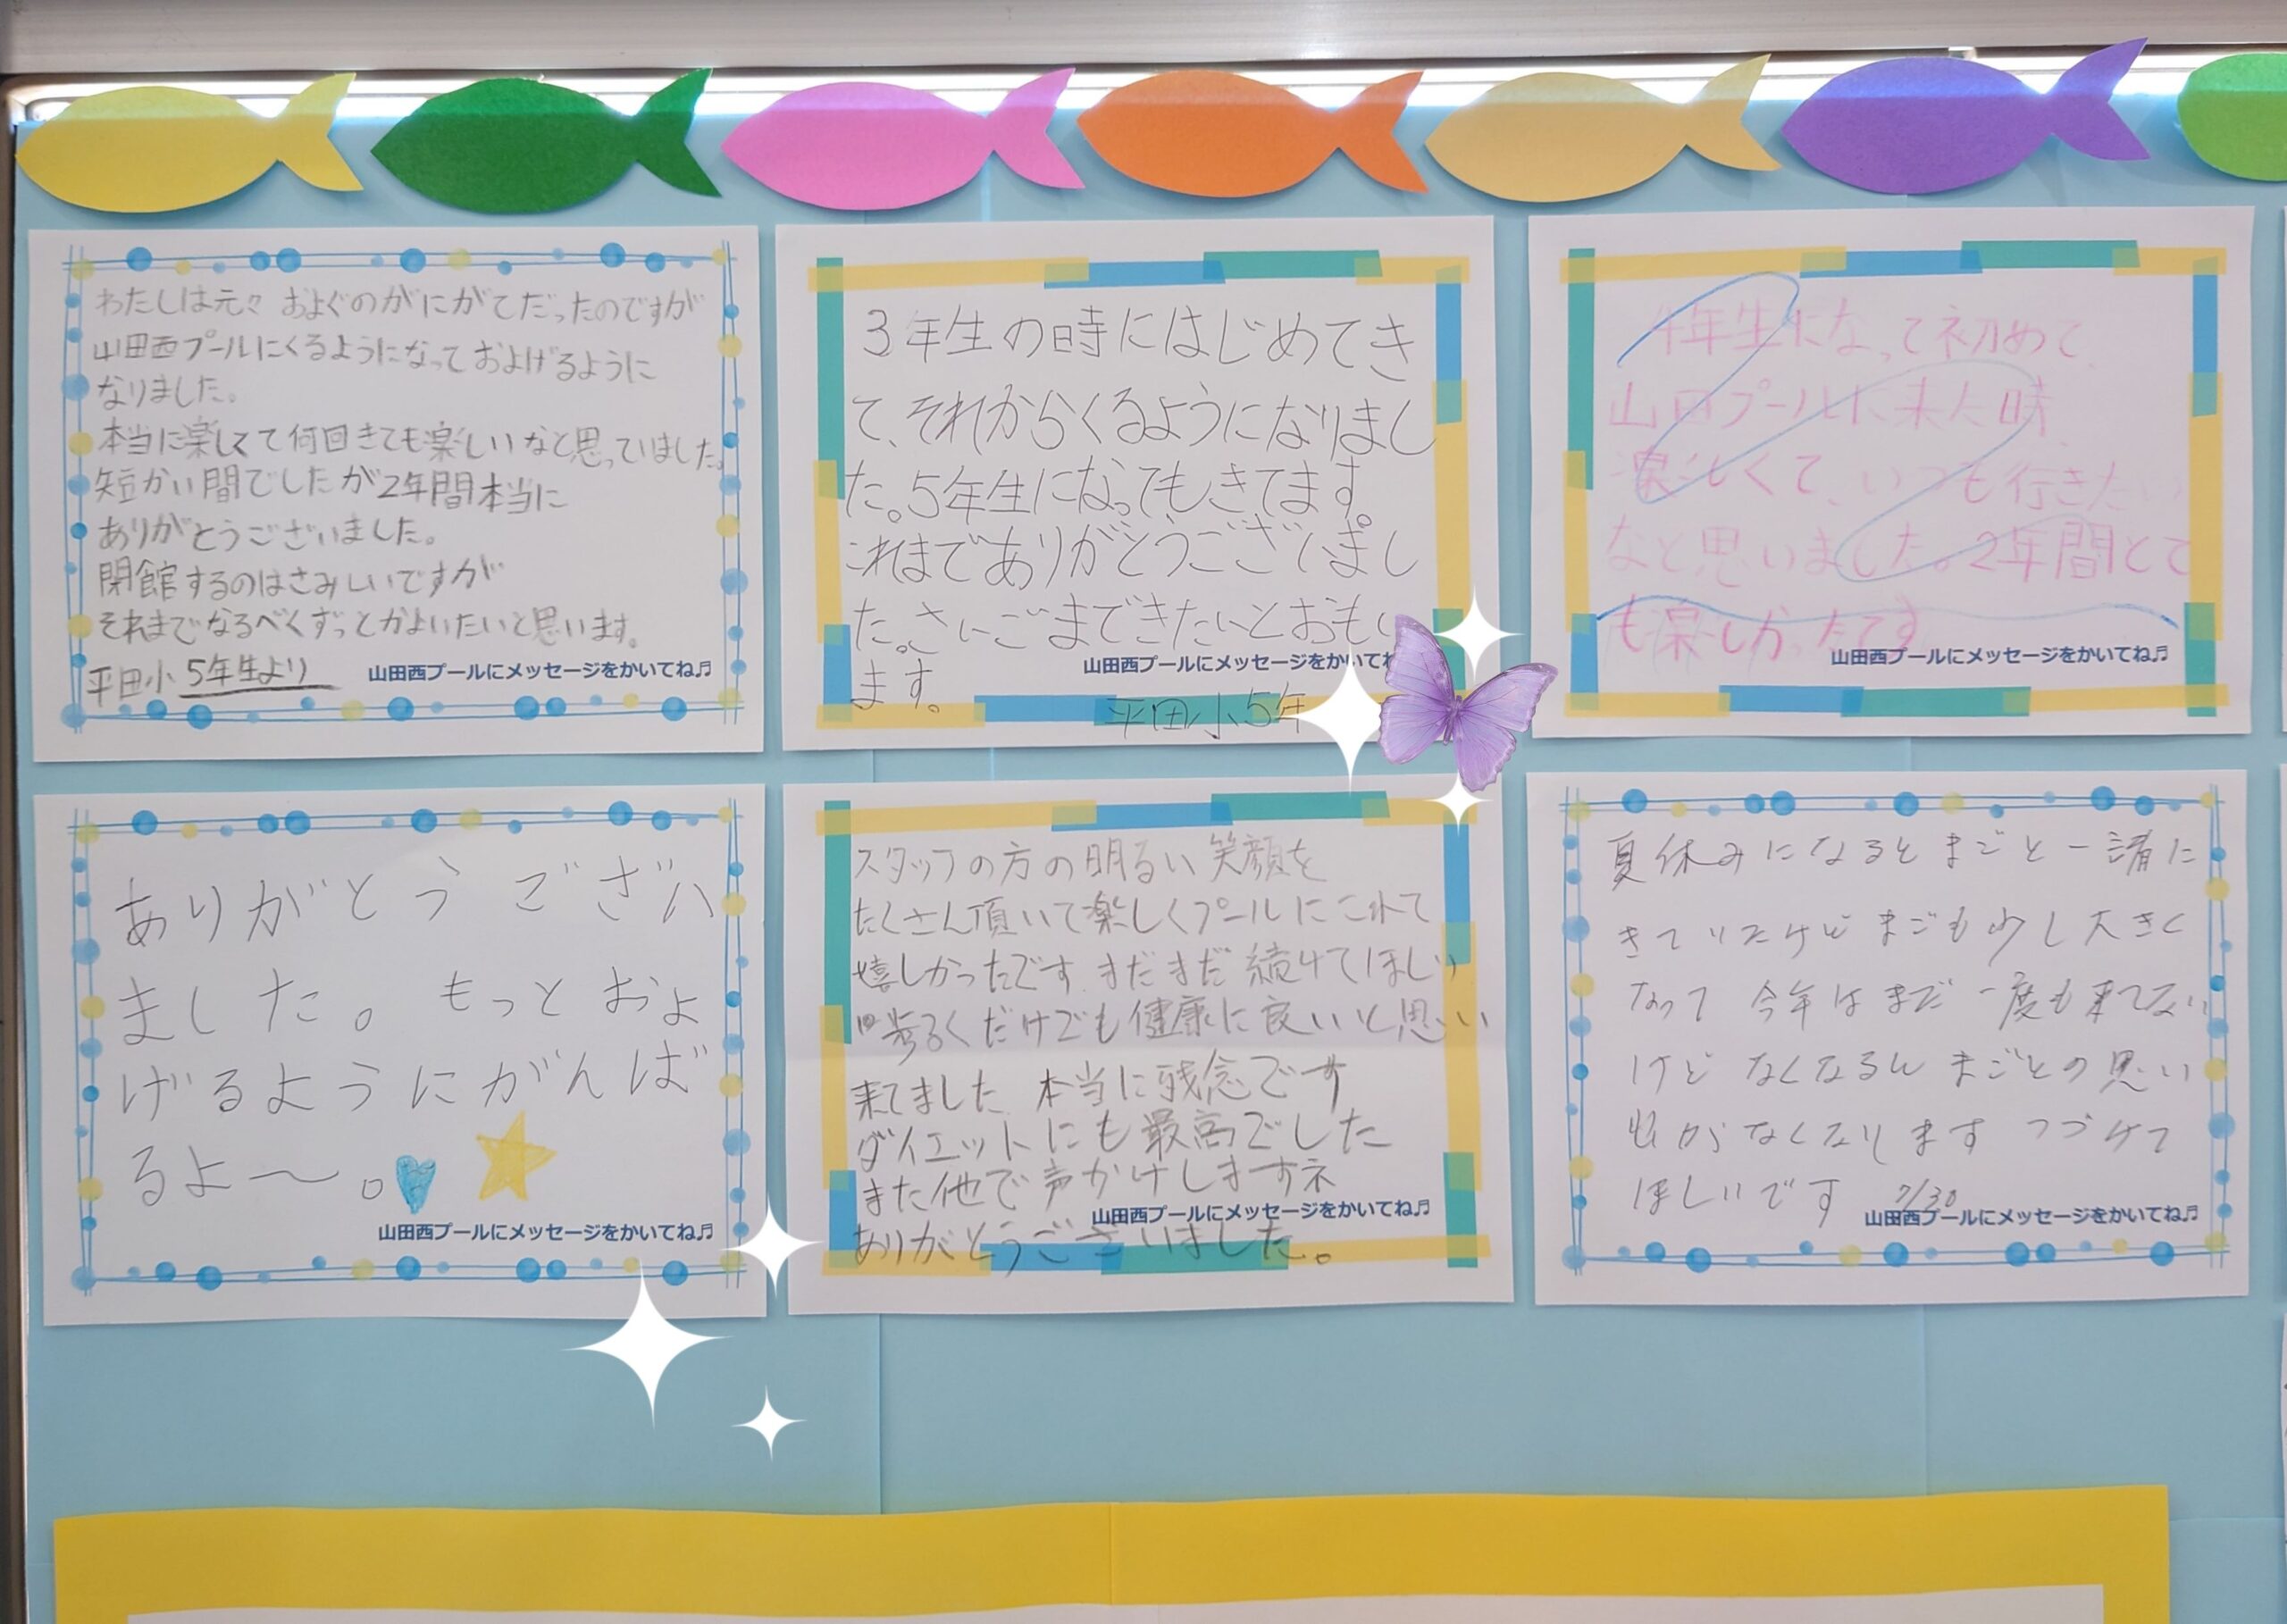 わたしは元々 およぐのがにがてだったのですが
山田西プールにくるようになっておよげるように
なりました。
本当に楽しくて何回きても楽しいなと思っていました。
短かい間でしたが2年間本当に
ありがとうございました。
閉館するのはさみしいですが
それまでなるべくずっとかよいたいと思います。
平田小 5年生より
山田西プールにメッセージをかいてね♬
3年生の時にはじめてき
て、それからくるようになりまし
た。5年生になってもきてます。
これまでありがとうございまし
た。さいごまできたいとおもい
ます。
山田西プールにメッセージをかいてね
平田小5年
4年生になって初めて、
山田プールに来た時、
楽しくて、いつも行きたい
なと思いました。2年間とて
も楽しかったです
山田西プールにメッセージをかいてね♬
ありがとう ござい
ました。 もっと およ
げるようにがんば
るよ〜。
山田西プールにメッセージをかいてね♬
スタッフの方の明るい笑顔を
たくさん頂いて楽しくプールにこれて
嬉しかったです。まだまだ続けてほしい
歩るくだけでも健康に良いと思い
来てました 本当に残念です
ダイエットにも最高でした
また他で声かけしますネ
山田西プールにメッセージをかいてね♬
ありがとうございました。
夏休みになるとまごと一諸に
きていたけど まごも少し大きく
なって 今年はまだ 一度も来てない
けど なくなるん まごとの思い
出がなくなります つづけて
ほしいです 7/30
山田西プールにメッセージをかいてね♬